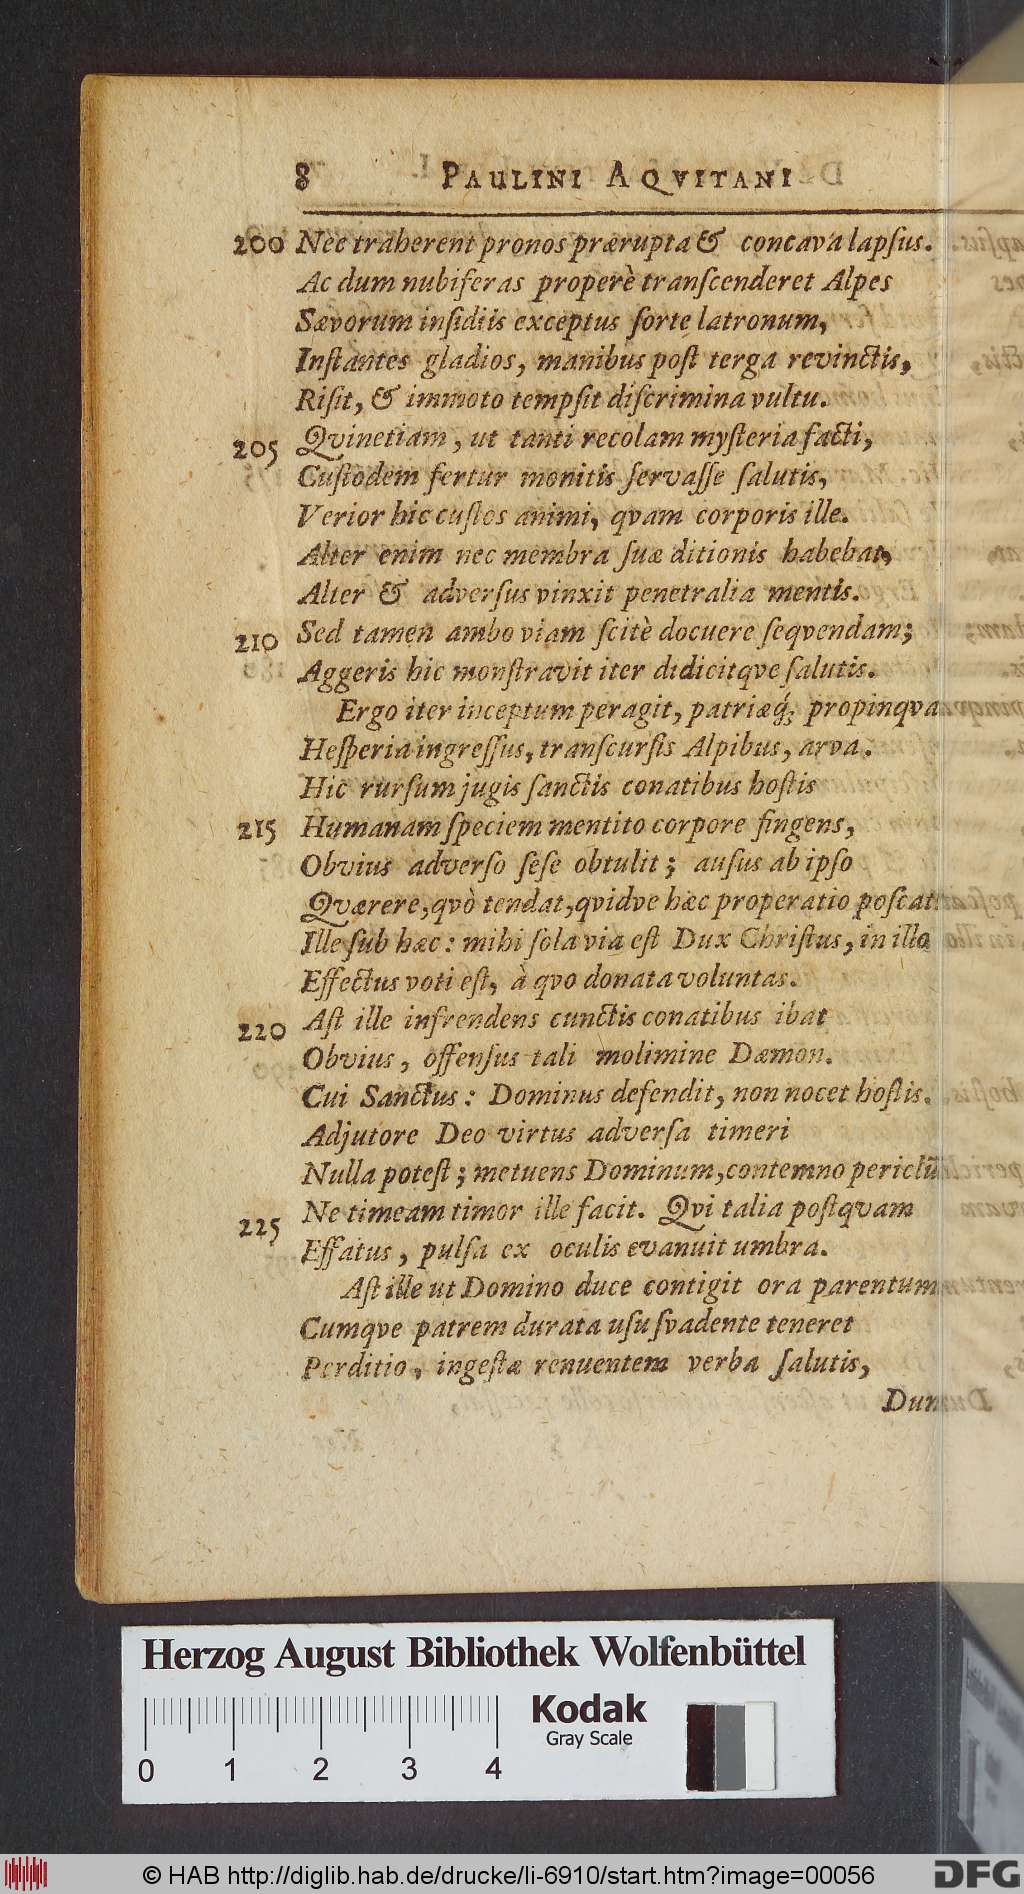 8 PAULINI AQVITANI
200 Nec traherent pronos prærupta & concava lapſus.
Ac dum nubiferas properè tranſcenderet Alpes
Sævorum inſidiis exceptus ſorte latronum,
Inſtantes gladios, manibus poſt terga revinctis,
Riſit, & immoto tempſit diſcrimina vultu.
205 Qvinetiam, ut tanti recolam myſteria facti,
Cuſtodem fertur monitis ſervaſſe ſalutis,
Verior hic cuſtos animi, qvam corporis ille.
Alter enim nec membra ſuæ ditionis habebat,
Alter & adverſus vinxit penetralia mentis.
210 Sed tamen ambo viam ſcitè docuere ſeqvendam;
Aggeris hic monſtravit iter didicitqve ſalutis.
Ergo iter inceptum peragit, patriæq́; propinqva
Heſperia ingreſſus, tranſcurſis Alpibus, arva.
Hic rurſum jugis ſanctis conatibus hoſtis
215 Humanam ſpeciem mentito corpore fingens,
Obvius adverſo ſeſe obtulit; auſus ab ipſo
Qværere, qvò tendat, qvidve hæc properatio poſcat:
Ille ſub hæc: mihi ſola via eſt Dux Chriſtus, in illo
Effectus voti eſt, à qvo donata voluntas.
220 Aſt ille infrendens cunctis conatibus ibat
Obvius, offenſus tali molimine Dæmon.
Cui Sanctus: Dominus defendit, non nocet hoſtis.
Adjutore Deo virtus adverſa timeri
Nulla poteſt; metuens Dominum, contemno periclū
225 Ne timeam timor ille facit. Qvi talia poſtqvam
Effatus, pulſa ex oculis evanuit umbra.
Aſt ille ut Domino duce contigit ora parentum
Cumqve patrem durata uſu ſvadente teneret
Perditio, ingeſtæ renuentem verba ſalutis,
Dum
Herzog August Bibliothek Wolfenbüttel
Kodak
Gray Scale
0 1 2 3 4
© HAB http://diglib.hab.de/drucke/li-6910/start.htm?image=00056
DFG